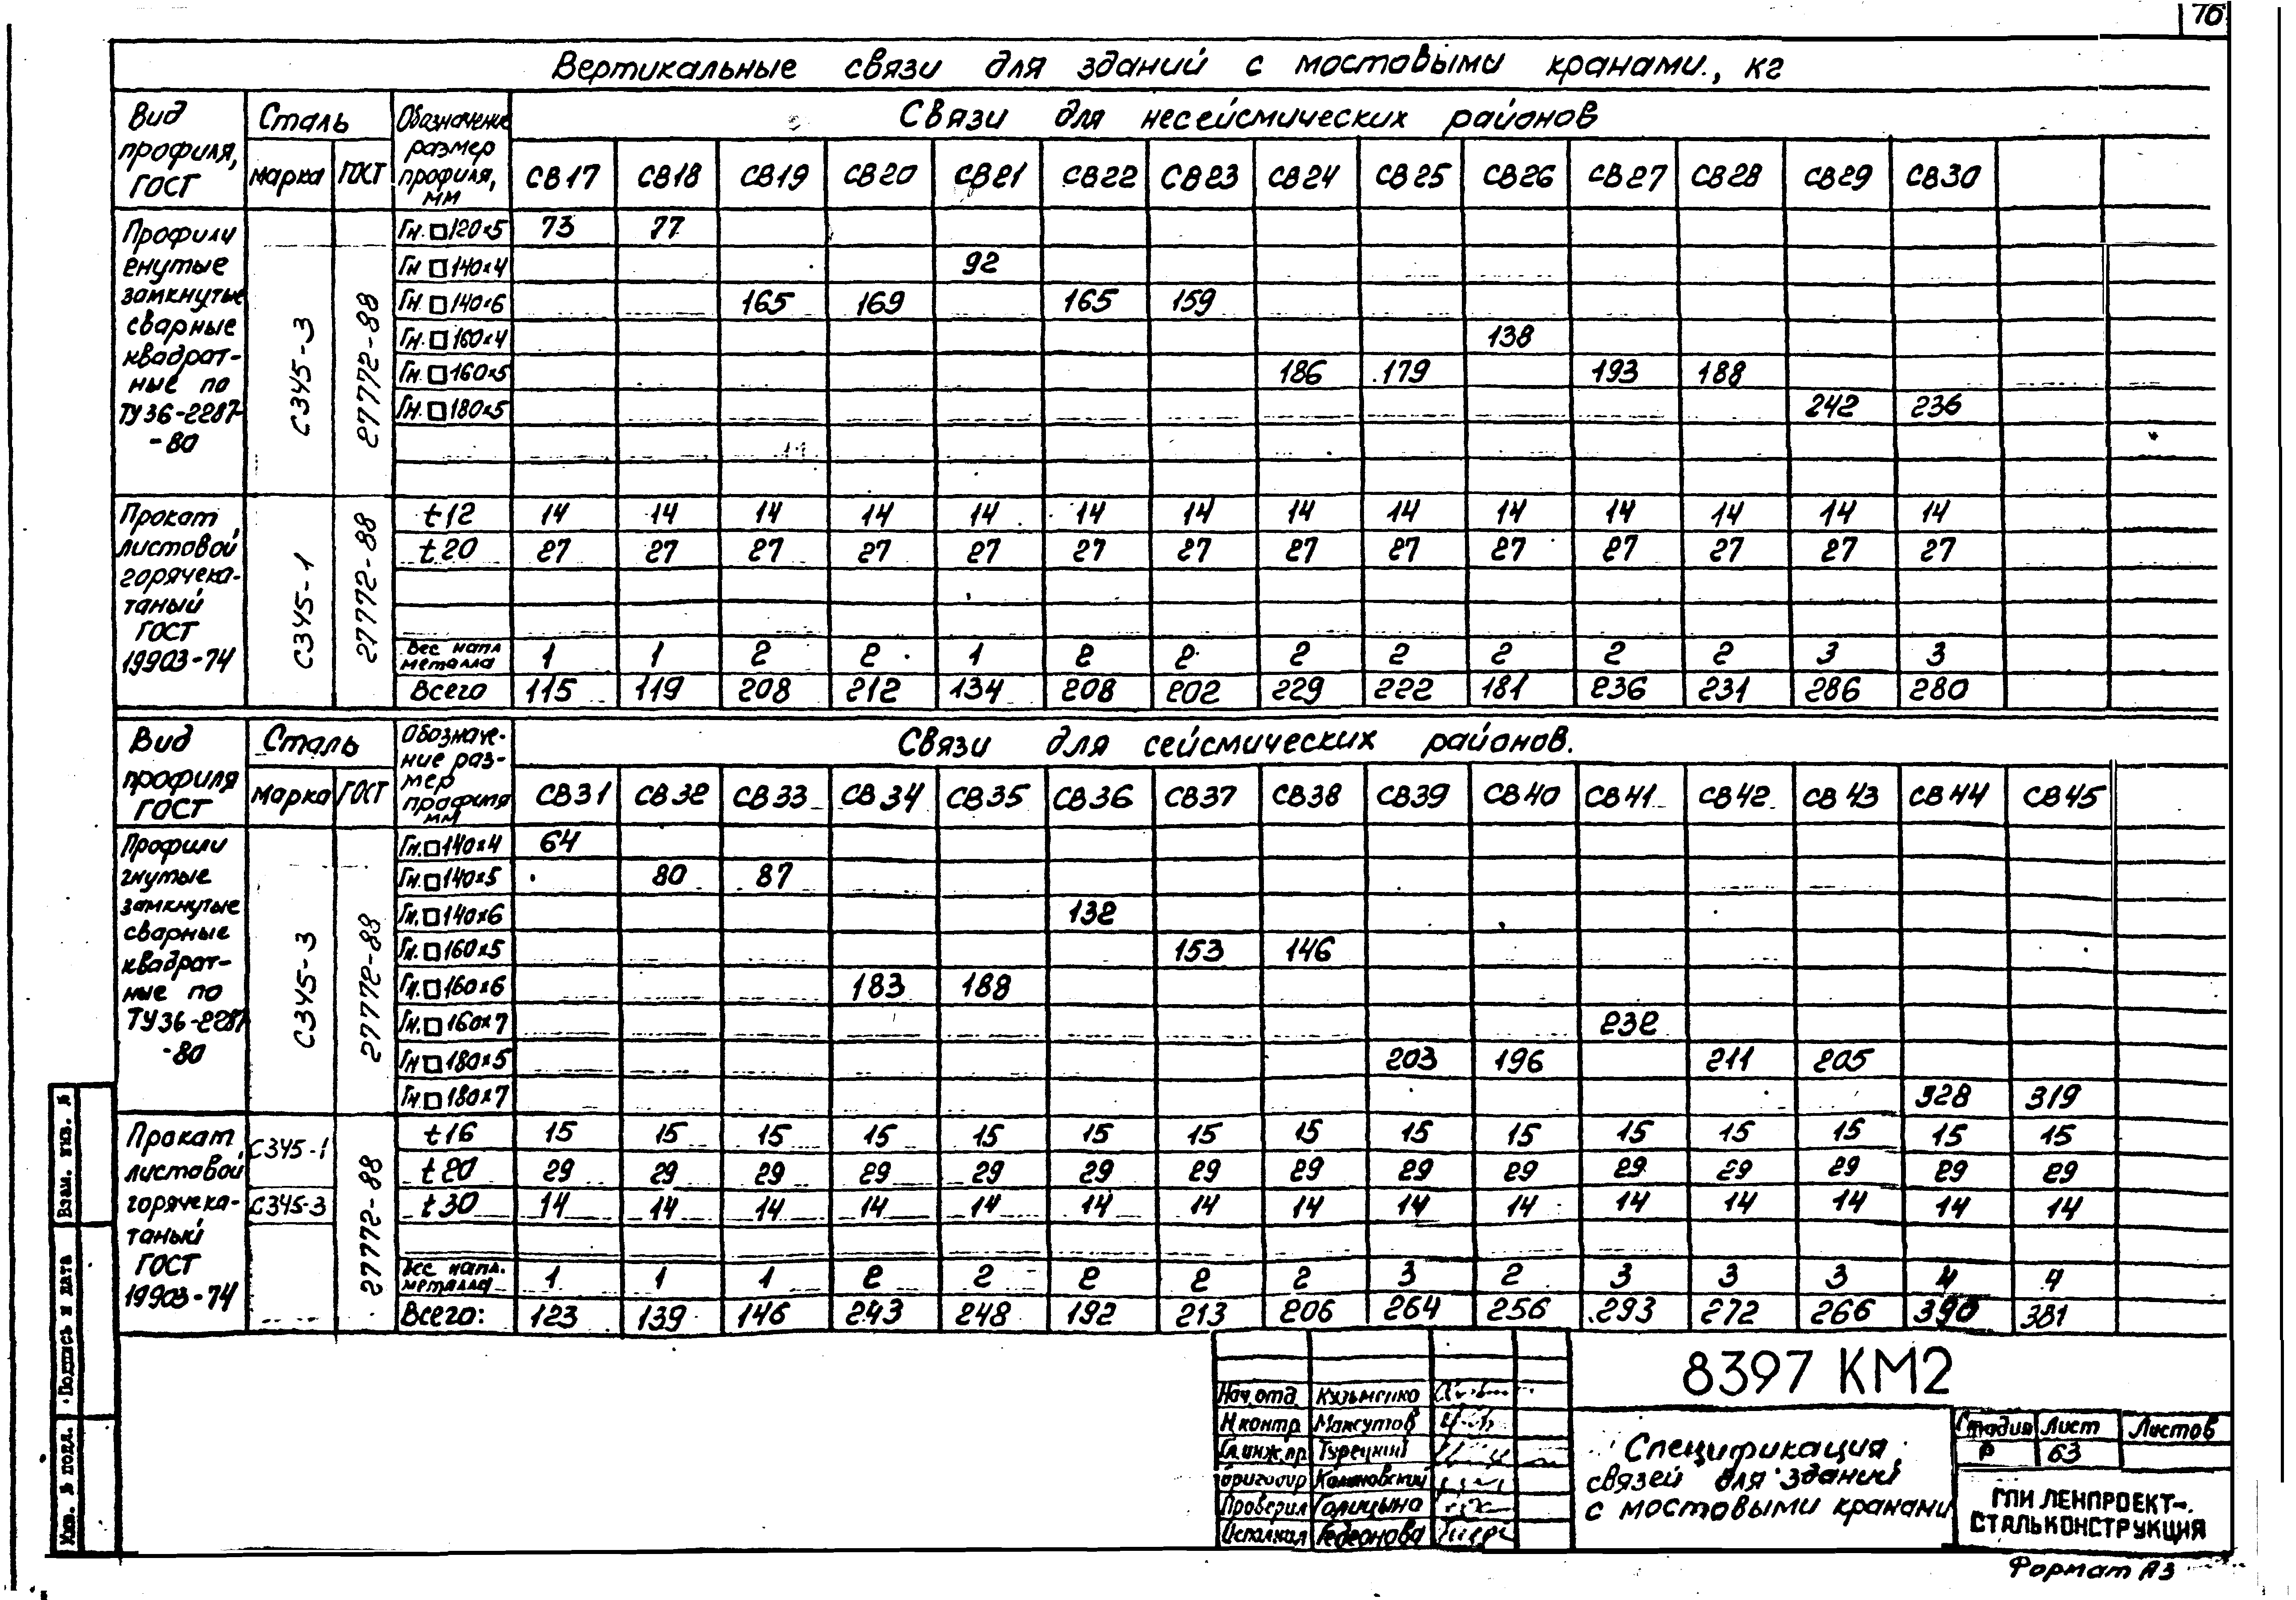 76
Вертикальные связи для зданий с мостовыми кранами., кг
Вид профиля, ГОСТ
Сталь
марка
ГОСТ
Обозначение размер профиля, мм
Связи для несейсмических районов
СВ17 СВ18 СВ19 СВ20 СВ21 СВ22 СВ23 СВ24 СВ25 СВ26 СВ27 СВ28 СВ29 СВ30
Профили
гнутые
замкнутые
сварные
квадрат-
ные по
ТУ36-2287-
-80
С345-3
27772-88
Гн.□120×5 73 77
Гн □140×4 92
Гн □140×6 165 169 165 159
Гн.□160×4 138
Гн.□160×5 186 179 193 188
Гн.□180×5 242 236
Прокат
листовой
горячека-
таный
ГОСТ
19903-74
С345-1
27772-88
t12 14 14 14 14 14 14 14 14 14 14 14 14 14 14
t20 27 27 27 27 27 27 27 27 27 27 27 27 27 27
Вес напл металла 1 1 2 2 1 2 2 2 2 2 2 2 3 3
Всего 115 119 208 212 134 208 202 229 222 181 236 231 286 280
Вид профиля ГОСТ
Сталь
марка
ГОСТ
Обозначе-
ние раз-
мер
профиля
мм
Связи для сейсмических районов.
СВ31 СВ32 СВ33 СВ34 СВ35 СВ36 СВ37 СВ38 СВ39 СВ40 СВ41 СВ42 СВ43 СВ44 СВ45
Профили
гнутые
замкнутые
сварные
квадрат-
ные по
ТУ36-2287
-80
С345-3
27772-88
Гн.□140×4 64
Гн.□140×5 80 87
Гн.□140×6 132
Гн.□160×5 153 146
Гн.□160×6 183 188
Гн.□160×7 232
Гн □180×5 203 196 211 205
Гн □180×7 328 319
Прокат
листовой
горячека-
таный
ГОСТ
19903-74
С345-1
С345-3
27772-88
t16 15 15 15 15 15 15 15 15 15 15 15 15 15 15 15
t20 29 29 29 29 29 29 29 29 29 29 29 29 29 29 29
t30 14 14 14 14 14 14 14 14 14 14 14 14 14 14 14
Вес напл. металла 1 1 1 2 2 2 2 2 3 2 3 3 3 4 4
Всего: 123 139 146 243 248 192 213 206 264 256 293 272 266 390 381
Взам. инв. №
Подпись и дата
Инв. № подл.
Нач.отд. Кузьменко
Н.контр. Максутов
Гл.инж.пр. Турецкий
Бригадир Калановский
Проверил Голицына
Исполнил Гедеонова
8397 КМ2
Спецификация
связей для зданий
с мостовыми кранами
Стадия Лист Листов
Р 63
ГПИ ЛЕНПРОЕКТ-
СТАЛЬКОНСТРУКЦИЯ
Формат А3